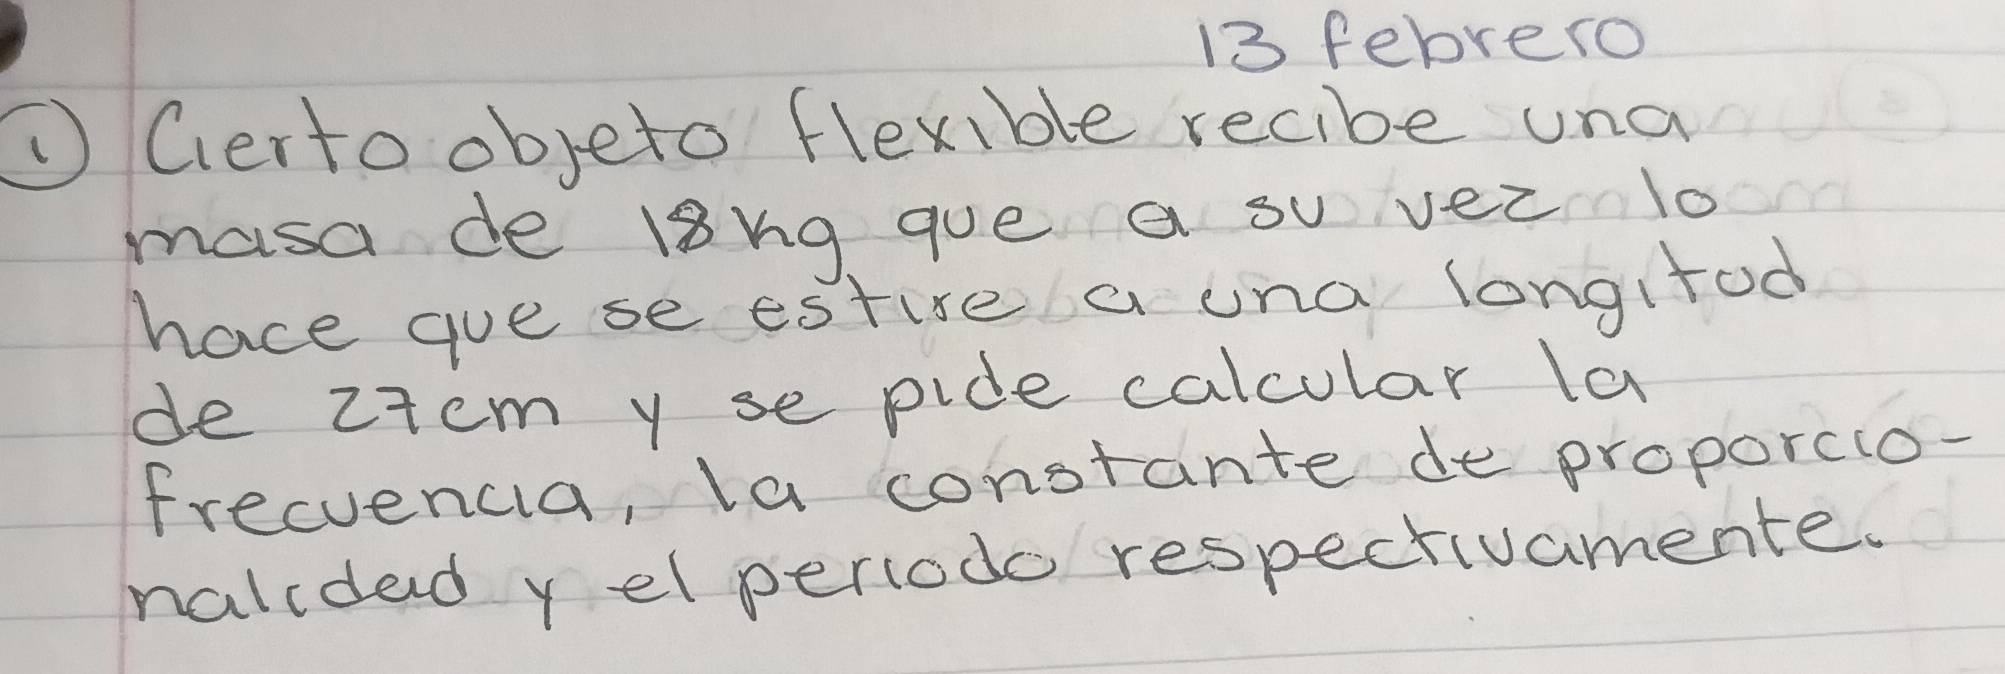 13 febrero
① Cierto objeto flexible recibe una
masa de 18kg que a su vez lo
hace que se estire a una longitud
de 27cm y se pide calcular la
frecuencia, la constante de proporcio-
nalidad y el periodo respectivamente.